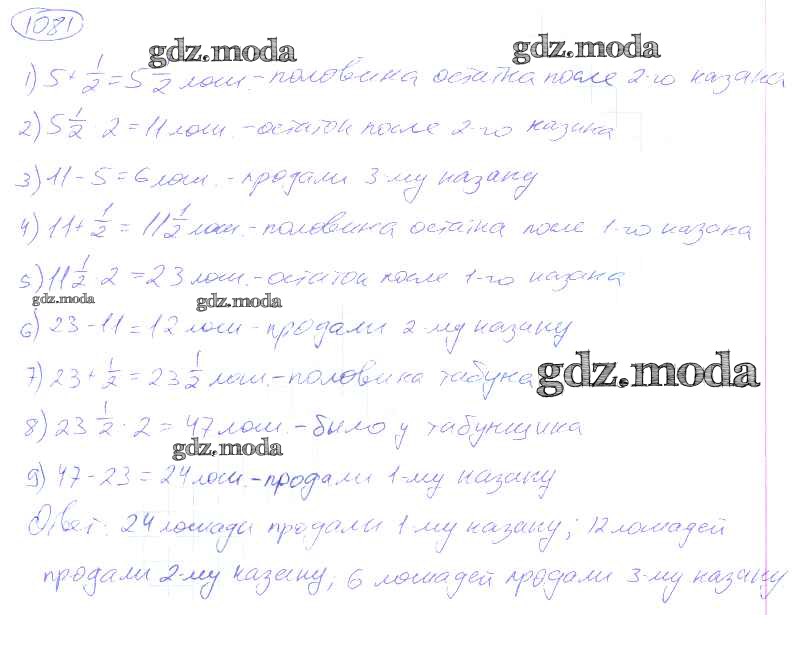 1081
gdz.moda gdz.moda
1) 5 + 1/2 = 5 1/2 лош. - половина остатка после 2-го казака
2) 5 1/2 · 2 = 11 лош. - остаток после 2-го казака
3) 11 - 5 = 6 лош. - продали 3-му казаку
4) 11 + 1/2 = 11 1/2 лош. - половина остатка после 1-го казака
5) 11 1/2 · 2 = 23 лош. - остаток после 1-го казака
gdz.moda gdz.moda
6) 23 - 11 = 12 лош - продали 2-му казаку
7) 23 + 1/2 = 23 1/2 лош. - половина табуна gdz.moda
8) 23 1/2 · 2 = 47 лош. - было у табунщика
gdz.moda
9) 47 - 23 = 24 лош. - продали 1-му казаку
Ответ: 24 лошади продали 1-му казаку; 12 лошадей
продали 2-му казаку; 6 лошадей продали 3-му казаку